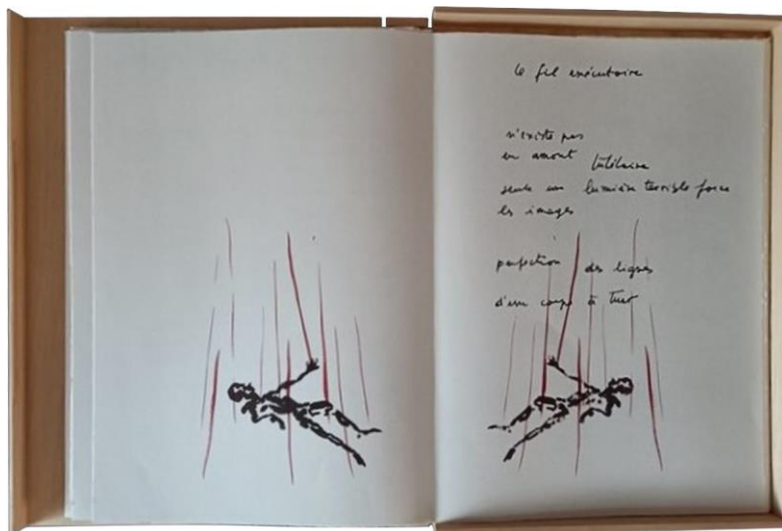 le fil exécutoire
n'existe pas
en amont
seule une lumière terrible force
les images
perfection des lignes
d'un corps à